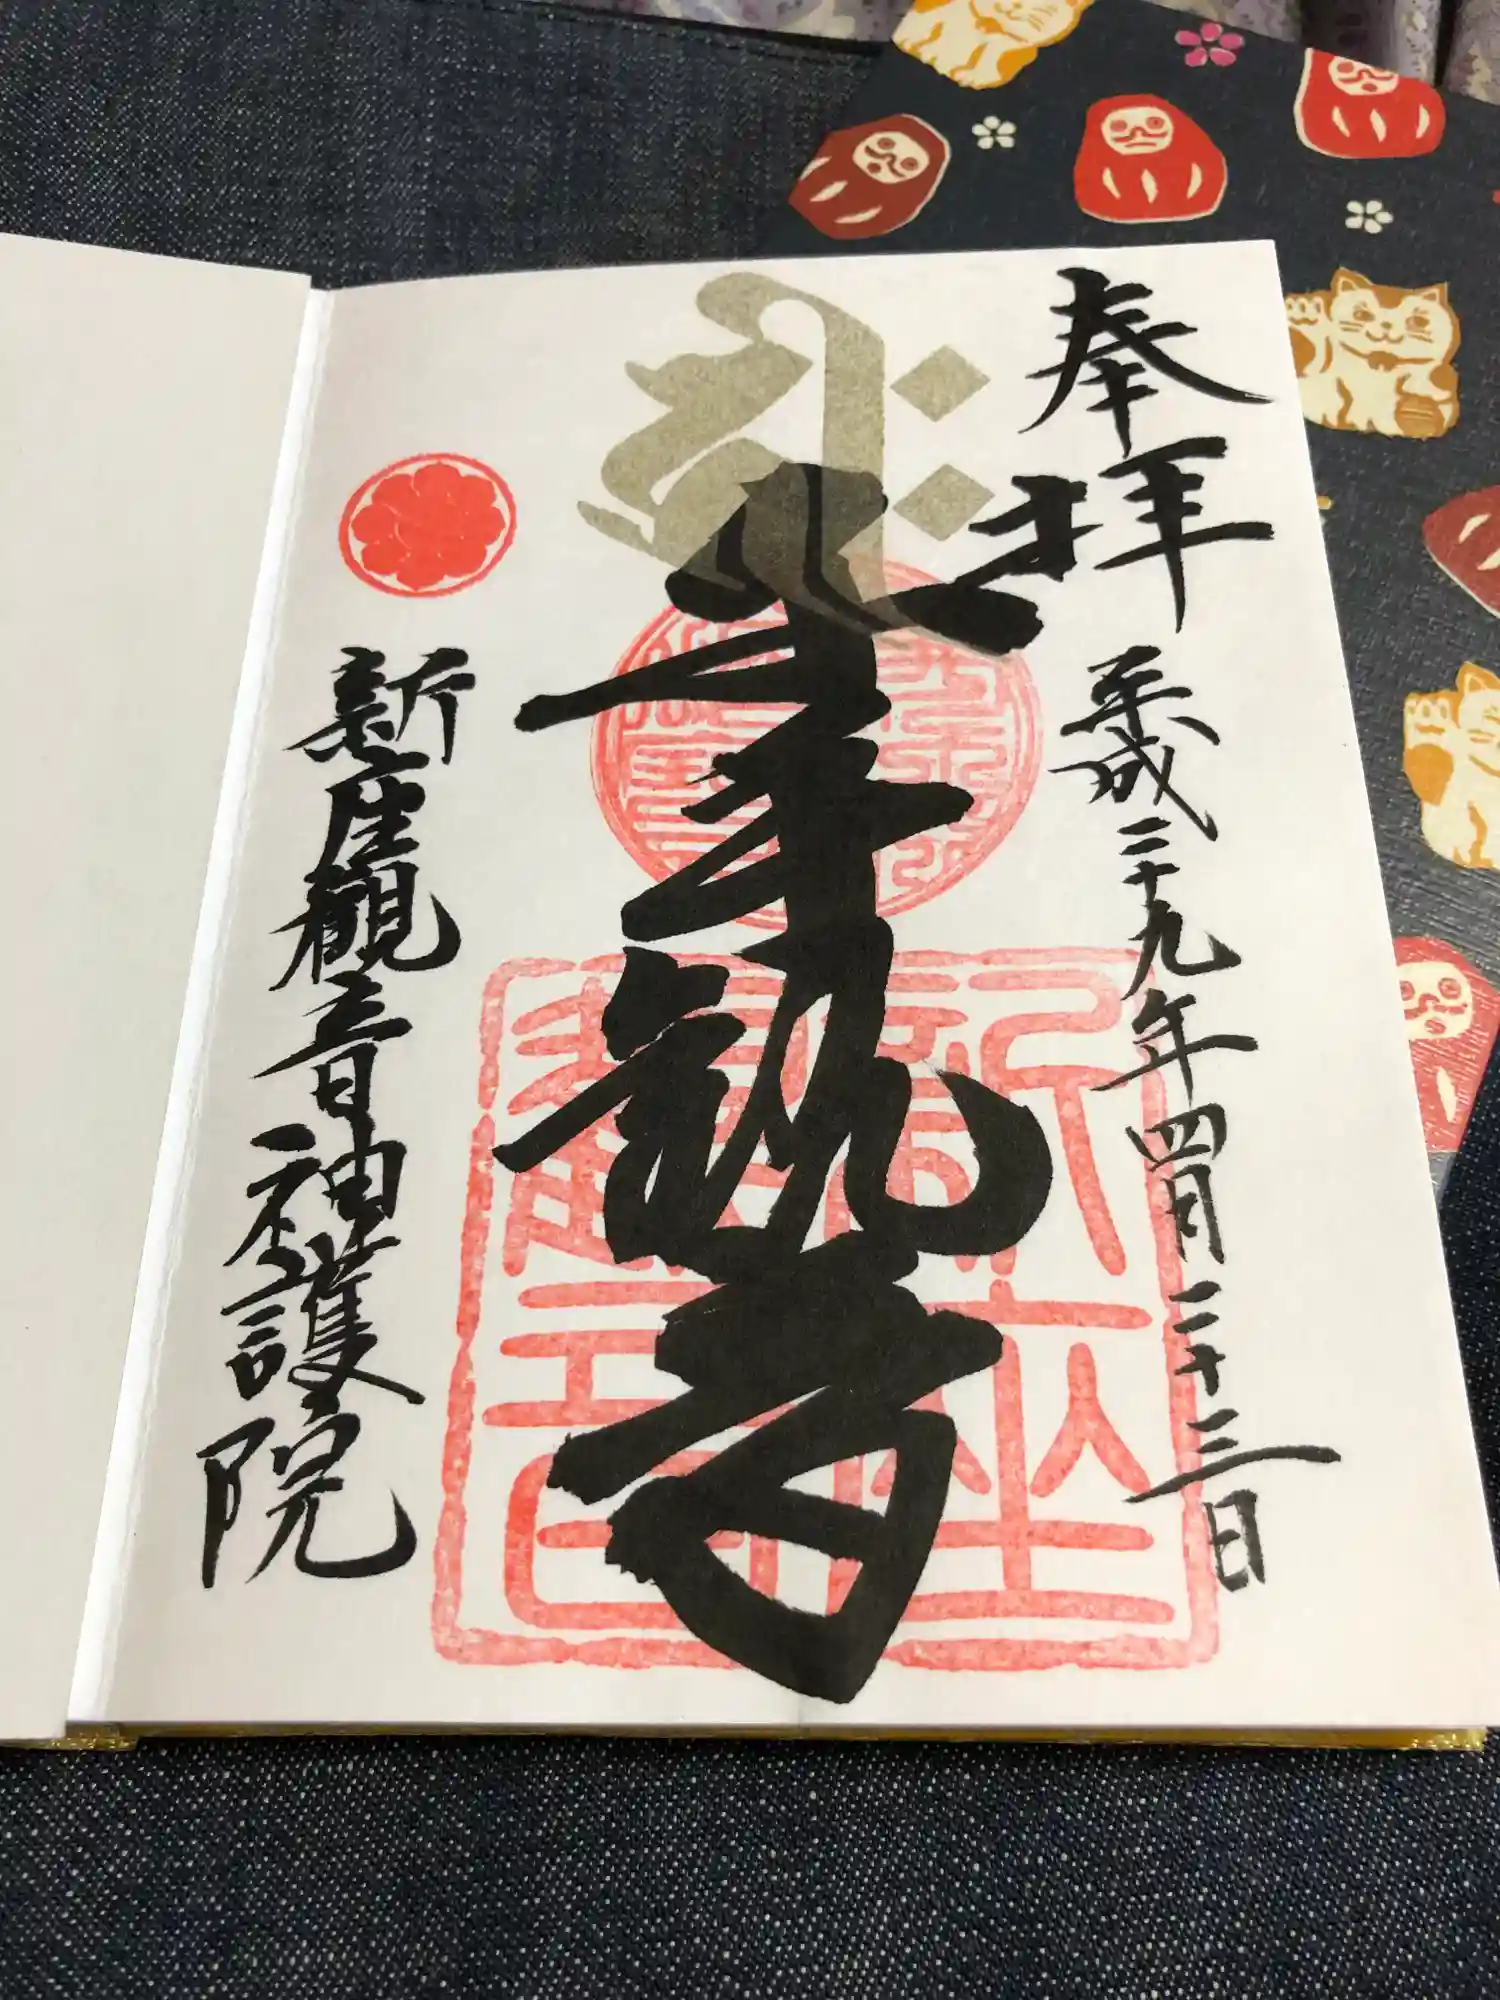 奉拝
平成二十九年四月二十三日
千手観音
新座観音
新座観音神護院